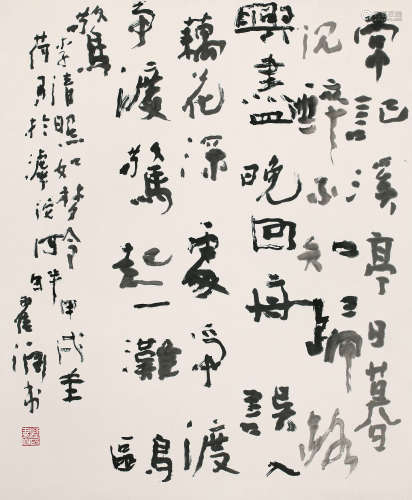 常記溪亭日暮
沉醉不知歸路
興盡晚回舟誤入
藕花深處爭渡
爭渡驚起一灘鷗
鷺
李清照如夢令 甲戌
荷月於